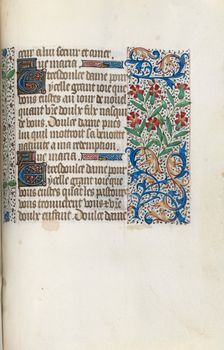 cuy a lui seruir et amer.
Aue maria.
Tresdoulce dame pour
ycelle grant ioie que
vous eustes au iour de nouel
quant vre doulx filz fu nasqui
Doulce dame
lui quil mottroit sa
naissite a ma redemption.
Aue maria.
Tresdoulce dame pour
ycelle grant ioie que
vous eustes quant les pastours
vous trouuerent vous et vre
doulx enfant. Doulce dame